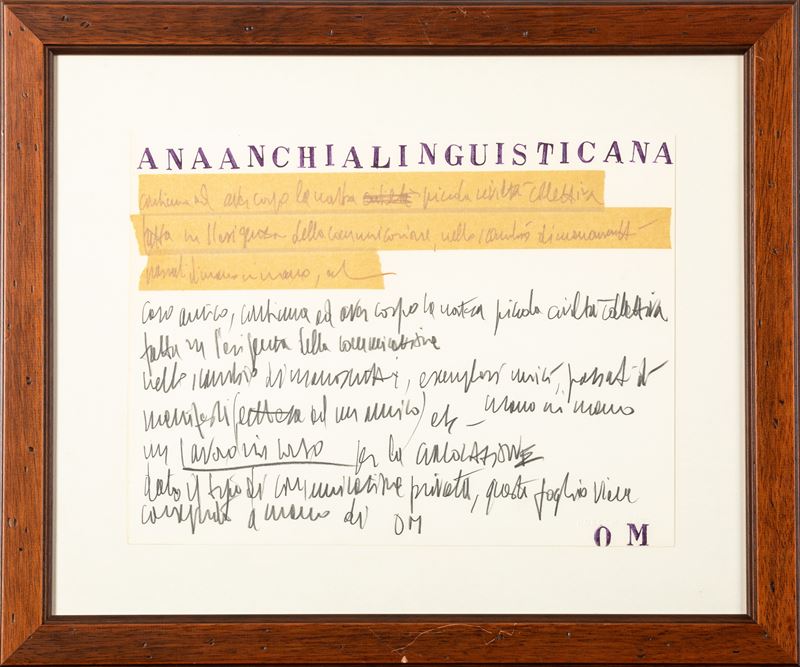 ANAANCHIALINGUISTICANA
continua ad aver corpo la nostra piccola civiltà collettiva
fatta in l'esigenza della comunicazione, nello scambio di manoscritti
passati di mano in mano, et
caro amico, continua ad aver corpo la nostra piccola civiltà collettiva
fatta in l'esigenza della comunicazione
nello scambio di manoscritti, esemplari unici, passati di
manifesti ad un amico) et – mano in mano
un lavoro in corso per la CIRCOLAZIONE
dato il tipo di comunicazione privata, questo foglio viene
consegnato a mano di OM
OM